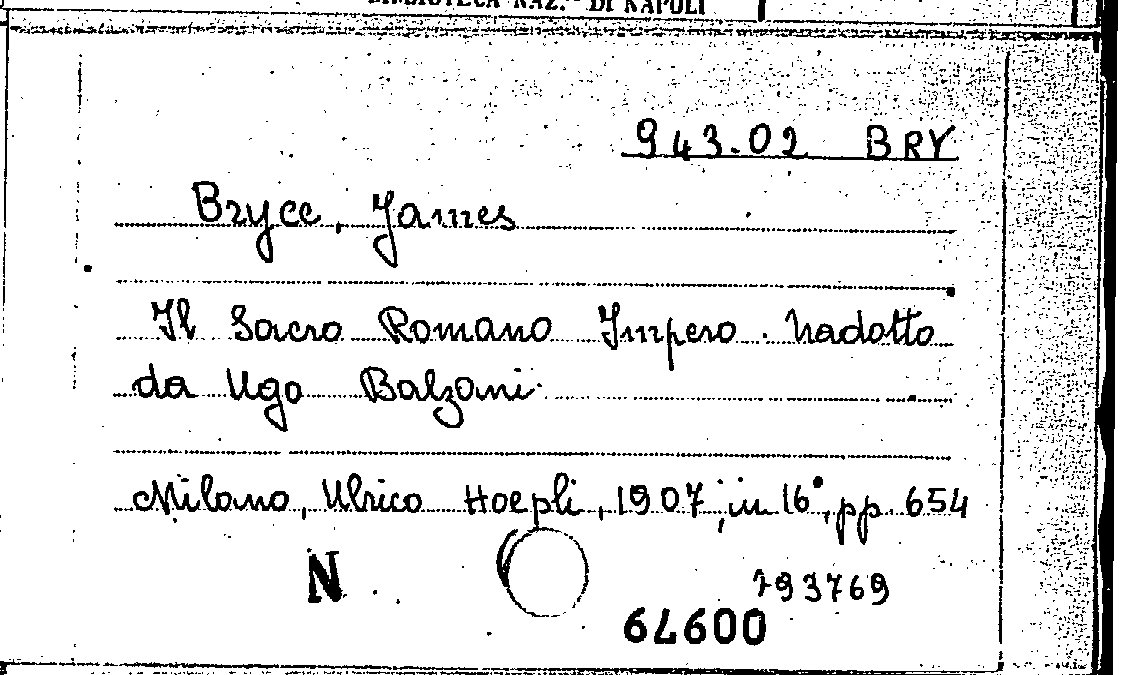 BIBLIOTECA NAZ. DI NAPOLI
943.02 BRY
Bryce, James
Il Sacro Romano Impero. Tradotto
da Ugo Balzani.
Milano, Ulrico Hoepli, 1907, in 16°, pp. 654
N
793769
64600